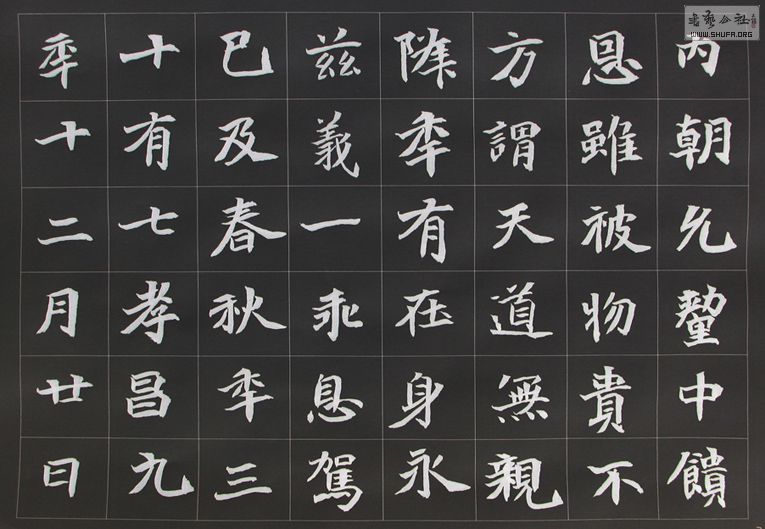 内朝允釐中饋
恩雖被物貴不
方謂天道無親
降年有在身永
兹義一乖息駕
已及春秋年三
十有七孝昌九
年十二月廿日
書藝公社
WWW.SHUFA.ORG